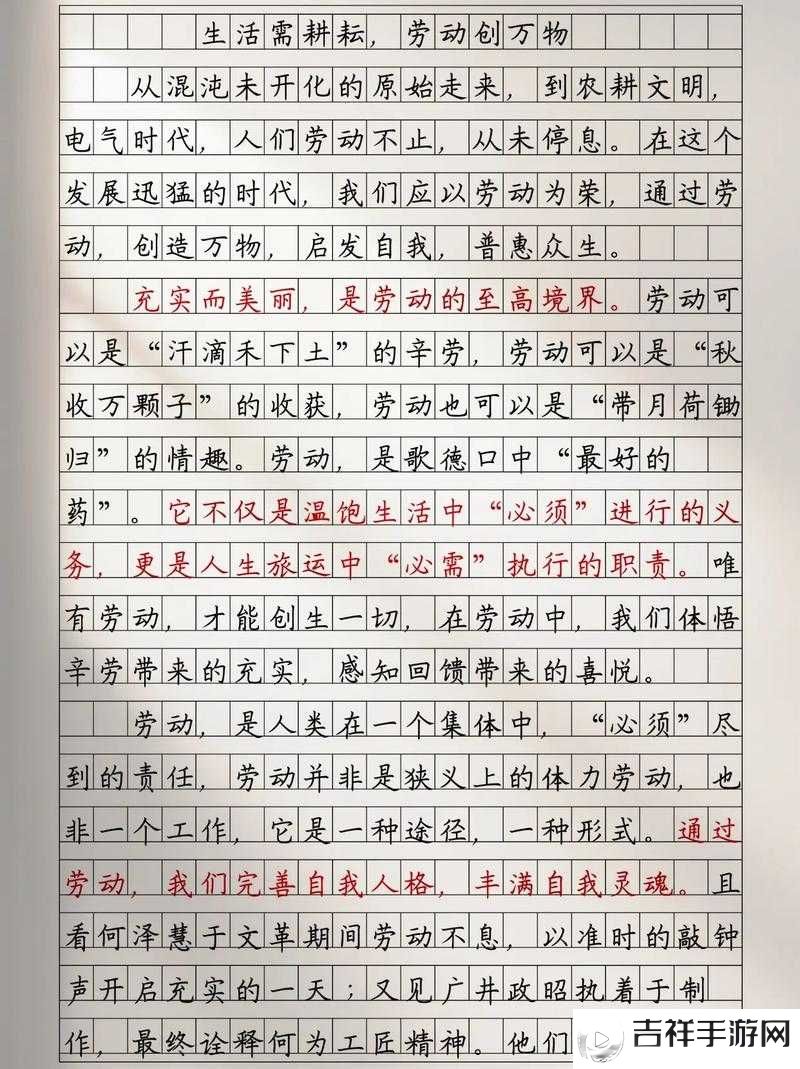 生活需耕耘，劳动创万物
从混沌未开化的原始走来，到农耕文明，
电气时代，人们劳动不止，从未停息。在这个
发展迅猛的时代，我们应以劳动为荣，通过劳
动，创造万物，启发自我，普惠众生。
充实而美丽，是劳动的至高境界。劳动可
以是“汗滴禾下土”的辛劳，劳动可以是“秋
收万颗子”的收获，劳动也可以是“带月荷锄
归”的情趣。劳动，是歌德口中“最好的
药”。它不仅是温饱生活中“必须”进行的义
务，更是人生旅运中“必需”执行的职责。唯
有劳动，才能创生一切，在劳动中，我们体悟
辛劳带来的充实，感知回馈带来的喜悦。
劳动，是人类在一个集体中，“必须”尽
到的责任，劳动并非是狭义上的体力劳动，也
非一个工作，它是一种途径，一种形式。通过
劳动，我们完善自我人格，丰满自我灵魂。且
看何泽慧于文革期间劳动不息，以准时的敲钟
声开启充实的一天；又见广井政昭执着于制
作，最终诠释何为工匠精神。他们
吉祥手游网